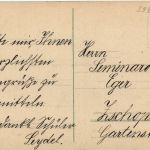 te mir Ihnen
herzlichsten
grüße zu
mitteln
dankb. Schüler
Seydel.
Herrn
Seminarob
Eger
Zschopau
Gartenstr